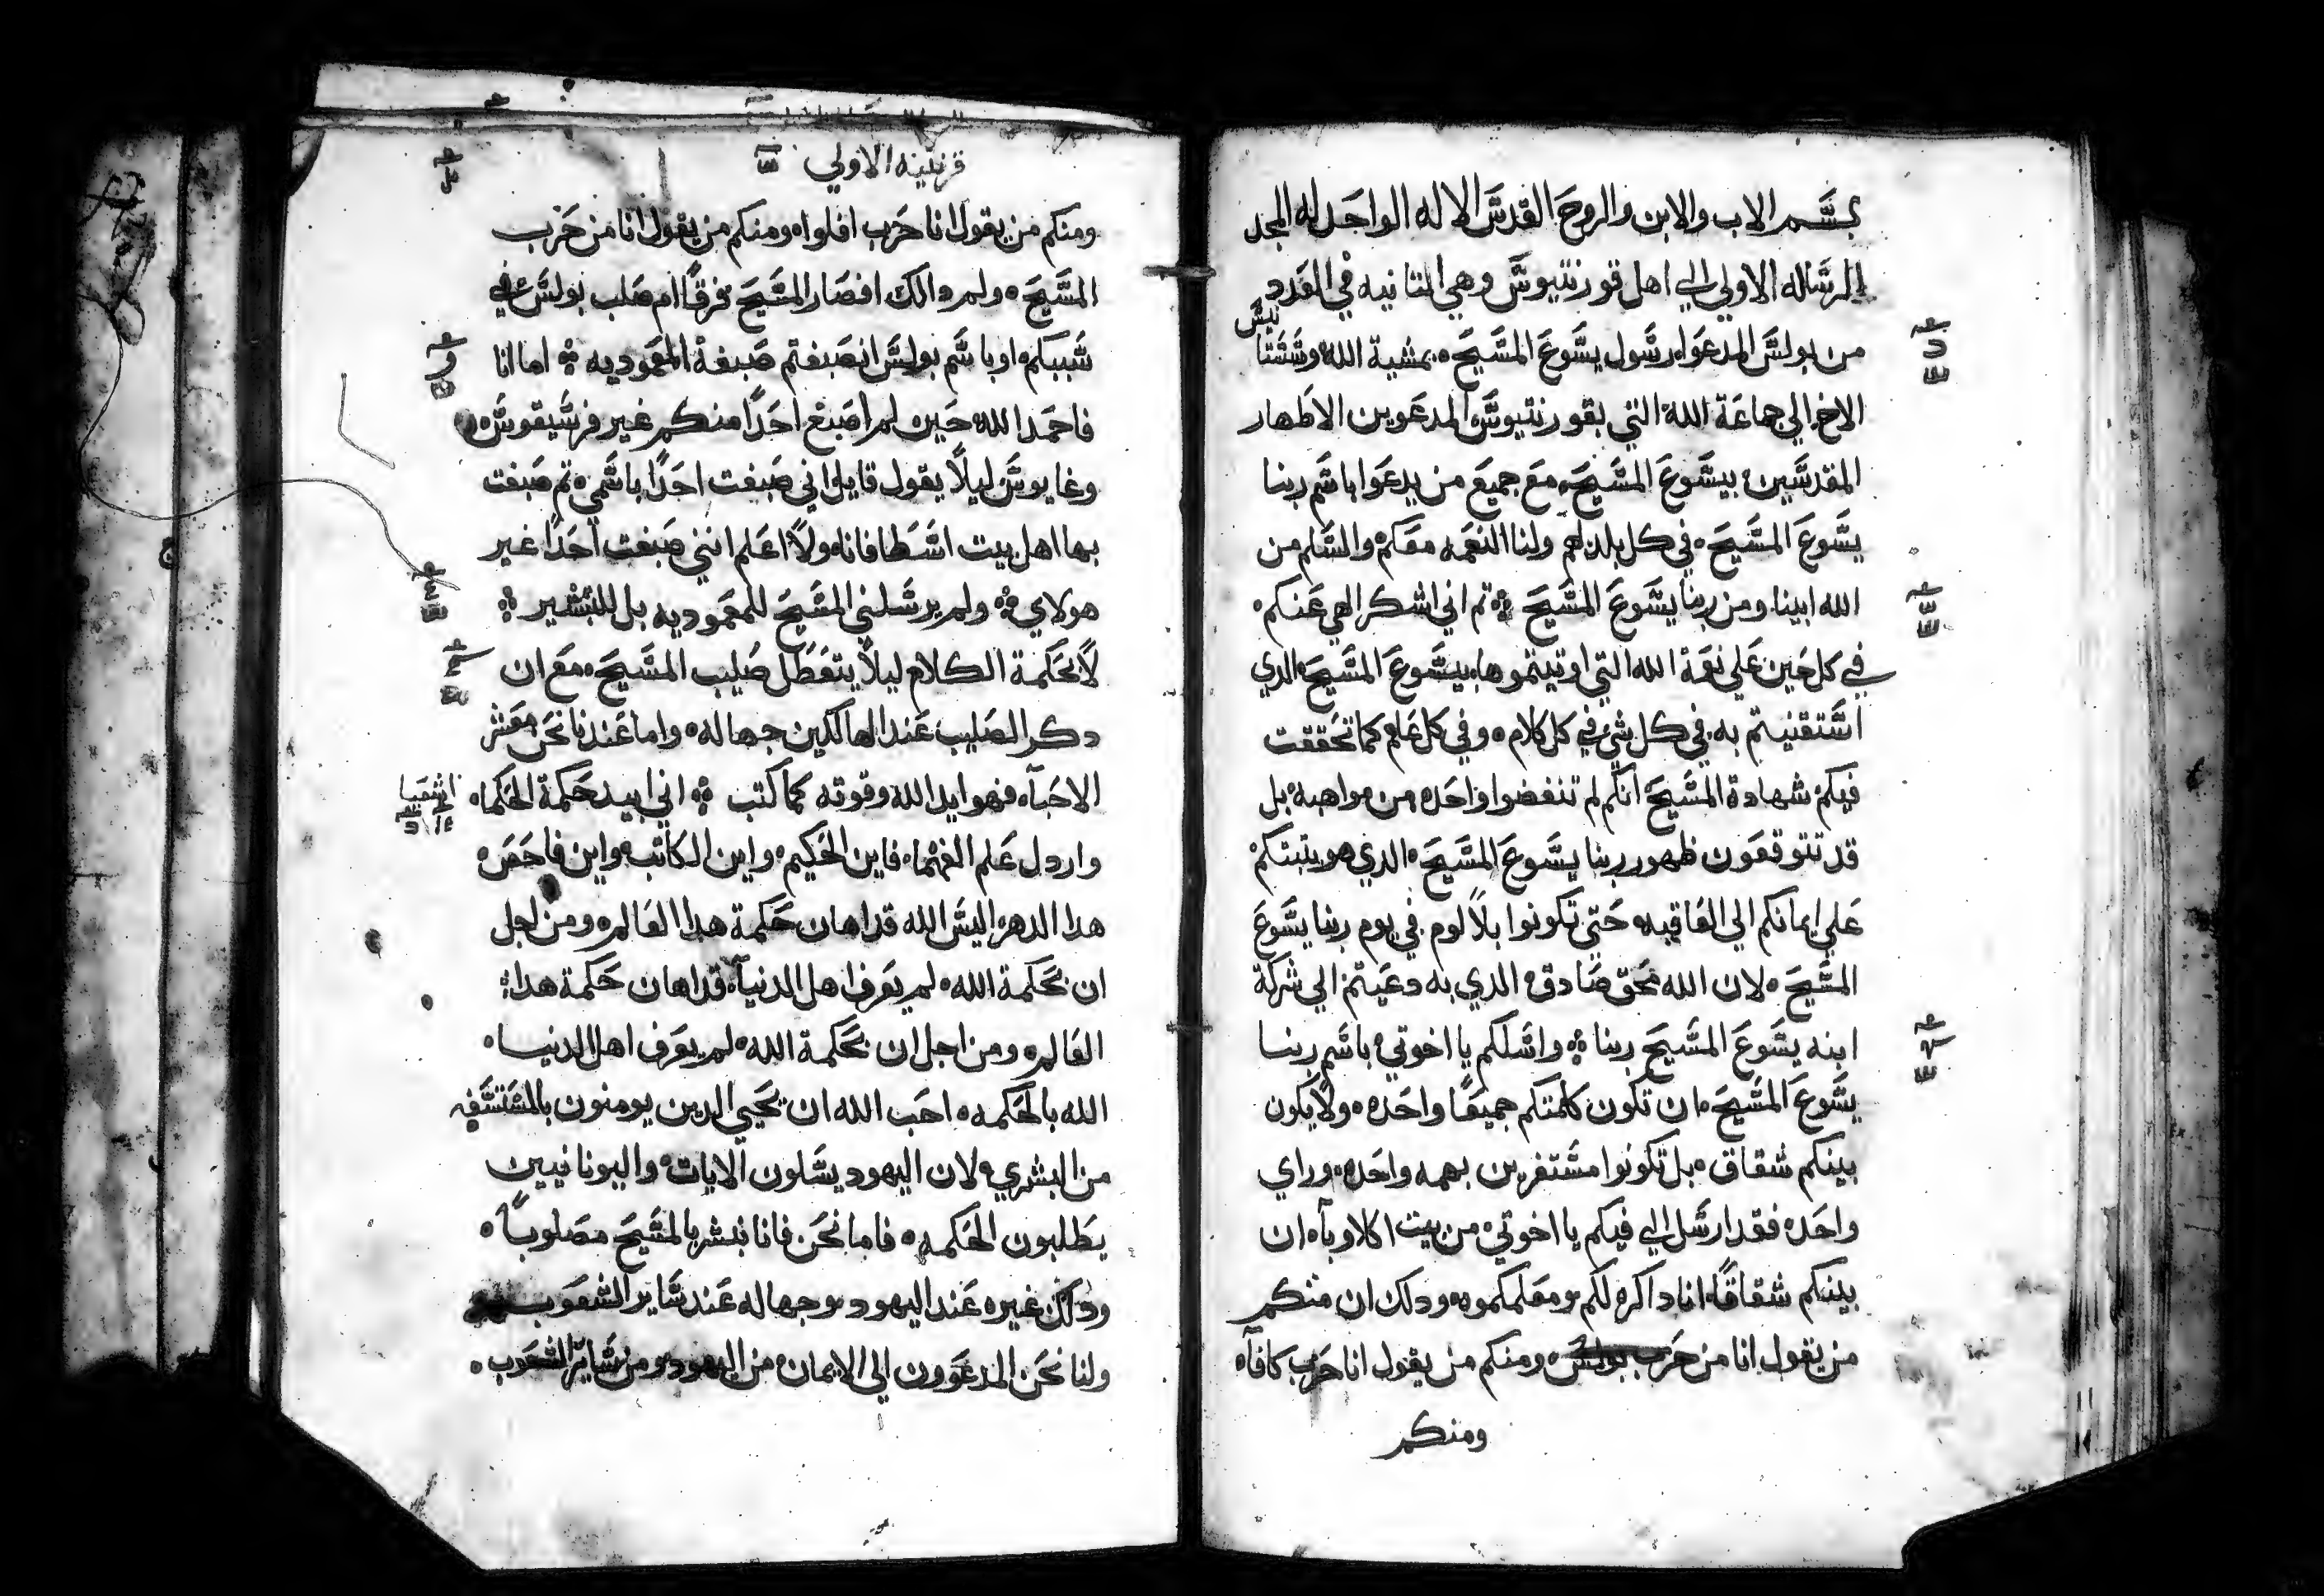 بسم الاب والابن والروح القدس الاله الواحد له المجد
الرساله الاولي الي اهل قورنتيوس وهي الثانيه في العدد
من بولس المدعوا رسول يسوع المسيح بمشية الله وسستا
نيس
الاخ الي جماعة الله التي بقورنتيوس المدعوين الاطهار
المقدسين بيسوع المسيح مع جميع من يدعوا باسم ربنا
يسوع المسيح في كل بلد لهم ولنا النعمه معكم والسلم من
الله ابينا ومن ربنا يسوع المسيح ثم اني اشكر الهي عنكم
في كل حين علي نعمة الله التي اوتيتموها بيسوع المسيح الدي
استقنيتم به في كل شي في كل كلام وفي كل علم كما تحققت
فيكم شهادة المسيح انكم لم تنغضوا واحده من مواهبه بل
قد تتوقعون ظهور ربنا يسوع المسيح الدي هو يثبتكم
علي ايمانكم الي العاقبه حتي تكونوا بلا لوم في يوم ربنا يسوع
المسيح لان الله بحق صادق الدي به دعيتم الي شركة
ابنه يسوع المسيح ربنا واسلكم يا اخوتي باسم ربنا
يسوع المسيح ان تكون كلمتكم جميعا واحده ولا يكون
بينكم شقاق بل تكونوا مستفرين بهمه واحده وراي
واحده فقد ارسل الي فيكم يا اخوتي من بيت اكلاوبآ ان
بينكم شقاقا انا داكره لكم ومعلمكموه ودلك ان منكم
من يقول انا من حزب بولس ومنكم من يقول انا حزب كافآ
ومنكم
قرنتيه الاولي
ومنكم من يقول انا حزب افلوا ومنكم من يقول انا من حزب
المسيح ولم دالك افصار المسيح فرقا ام صلب بولس في
سببكم او باسم بولس انصبغتم صبغة المعموديه اما انا
فاحمد الله حين لم اصبغ احدا منكم غير فرسيقوس
وغايوس ليلا يقول قايل اني صبغت احدا باسمي ثم صبغت
بها اهل بيت اسطافانا ولا اعلم انني صبغت احدا غير
هولاي ولم يرسلني المسيح للمعموديه بل للتبشير
لا بحكمة الكلام ليلا يتعطل صليب المسيح مع ان
دكر الصليب عند الهالكين جهاله واما عندنا نحن معشر
الاحبآ فهو ايد الله وقوته كما كتب اني ابيد حكمة الحكما
اشعيا
واردل علم الفهما فاين الحكيم واين الكاتب واين فاحص
هدا الدهر اليس الله قد اهان حكمة هدا العالم ومن اجل
ان بحكمة الله لم يعرف اهل الدنيآ قد اهان حكمة هدا
العالم ومن اجل ان بحكمة الله لم يعرف اهل الدنيا
الله بالحكمه احب الله ان يحيي الدين يومنون بالمستسفه
من البشري لان اليهود يسلون الايات واليونانيين
يطلبون الحكمه فاما نحن فانا نبشر بالمسيح مصلوبا
ودلك غيره عند اليهود وجهاله عند ساير الشعوب
ولنا نحن المدعوون الي الايمان من اليهود ومن ساير الشعوب